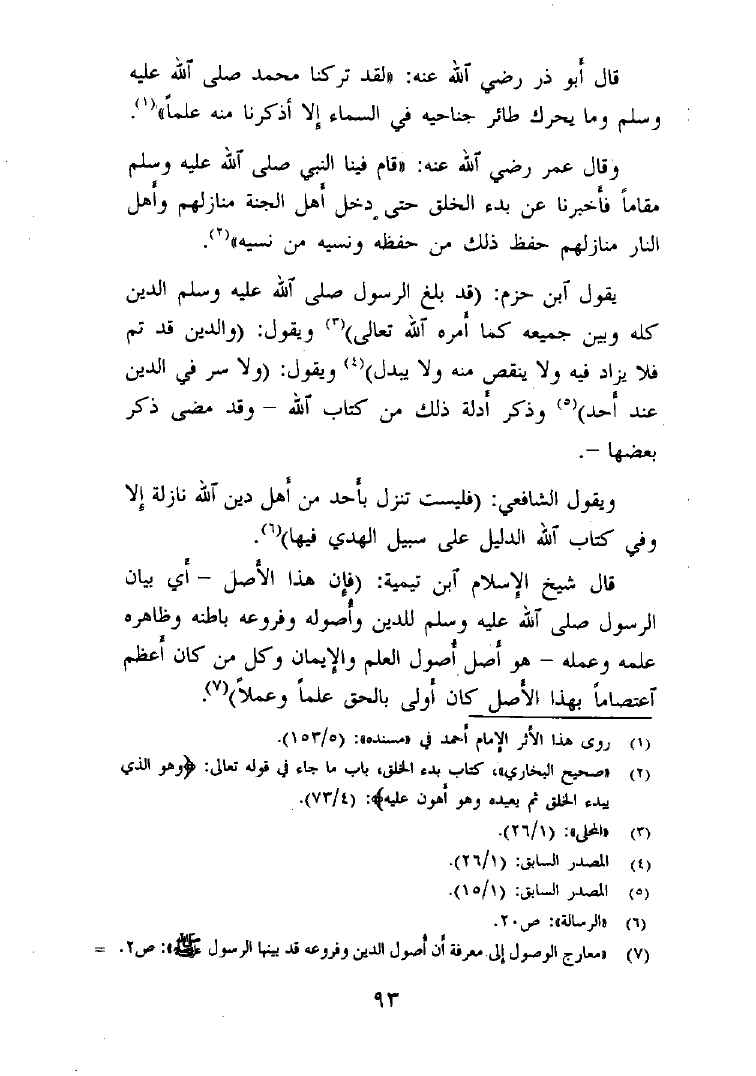 قال أبو ذر رضي ٱلله عنه: «لقد تركنا محمد صلى ٱلله عليه
وسلم وما يحرك طائر جناحيه في السماء إلا أذكرنا منه علماً»(١).
وقال عمر رضي ٱلله عنه: «قام فينا النبي صلى ٱلله عليه وسلم
مقاماً فأخبرنا عن بدء الخلق حتى دخل أهل الجنة منازلهم وأهل
النار منازلهم حفظ ذلك من حفظه ونسيه من نسيه»(٢).
يقول ٱبن حزم: (قد بلغ الرسول صلى ٱلله عليه وسلم الدين
كله وبين جميعه كما أمره ٱلله تعالى)(٣) ويقول: (والدين قد تم
فلا يزاد فيه ولا ينقص منه ولا يبدل)(٤) ويقول: (ولا سر في الدين
عند أحد)(٥) وذكر أدلة ذلك من كتاب ٱلله – وقد مضى ذكر
بعضها –.
ويقول الشافعي: (فليست تنزل بأحد من أهل دين ٱلله نازلة إلا
وفي كتاب ٱلله الدليل على سبيل الهدي فيها)(٦).
قال شيخ الإسلام ٱبن تيمية: (فإن هذا الأصل – أي بيان
الرسول صلى ٱلله عليه وسلم للدين وأصوله وفروعه باطنه وظاهره
علمه وعمله – هو أصل أصول العلم والإيمان وكل من كان أعظم
ٱعتصاماً بهذا الأصل كان أولى بالحق علماً وعملاً)(٧).
(١) روى هذا الأثر الإمام أحمد في «مسنده»: (١٥٣/٥).
(٢) «صحيح البخاري»، كتاب بدء الخلق، باب ما جاء في قوله تعالى: ﴿وهو الذي
يبدء الخلق ثم يعيده وهو أهون عليه﴾: (٧٣/٤).
(٣) «المحلى»: (٢٦/١).
(٤) المصدر السابق: (٢٦/١).
(٥) المصدر السابق: (١٥/١).
(٦) «الرسالة»: ص٢٠.
(٧) «معارج الوصول إلى معرفة أن أصول الدين وفروعه قد بينها الرسول ﷺ»: ص٢. =
٩٣